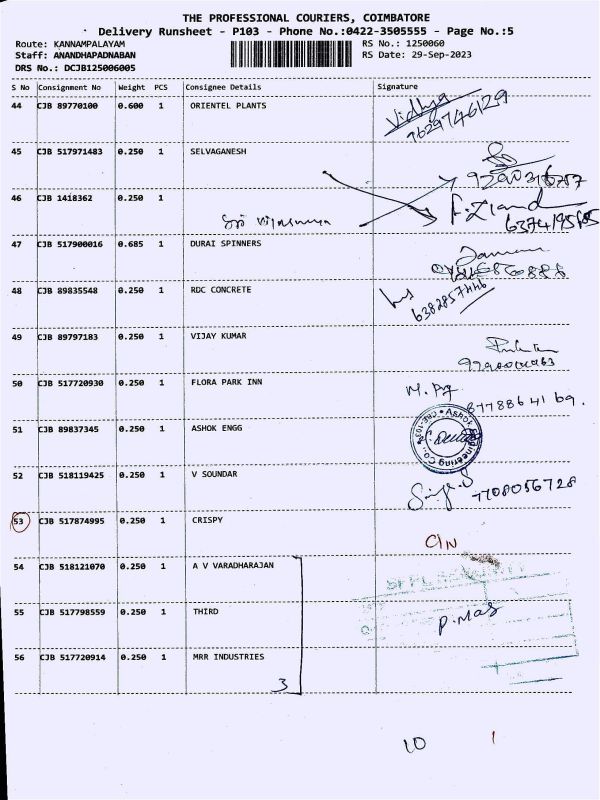 THE PROFESSIONAL COURIERS, COIMBATORE
Delivery Runsheet - P103 - Phone No.:0422-3505555 - Page No.:5
Route: KANNAMPALAYAM RS No.: 1250060
Staff: ANANDHAPADNABAN RS Date: 29-Sep-2023
DRS No.: DCJB125006005
S No Consignment No Weight PCS Consignee Details Signature
44 CJB 89770100 0.600 1 ORIENTEL PLANTS Vidhya
7629746129
45 CJB 517971483 0.250 1 SELVAGANESH
46 CJB 1418362 0.250 1
6374195865
47 CJB 517900016 0.685 1 DURAI SPINNERS
48 CJB 89835548 0.250 1 RDC CONCRETE
6382857446
49 CJB 89797183 0.250 1 VIJAY KUMAR
50 CJB 517720930 0.250 1 FLORA PARK INN
8778864169.
51 CJB 89837345 0.250 1 ASHOK ENGG
52 CJB 518119425 0.250 1 V SOUNDAR
7708056728
53 CJB 517874995 0.250 1 CRISPY
C/N
54 CJB 518121070 0.250 1 A V VARADHARAJAN
55 CJB 517798559 0.250 1 THIRD P. Mas
56 CJB 517720914 0.250 1 MRR INDUSTRIES
3
10 1